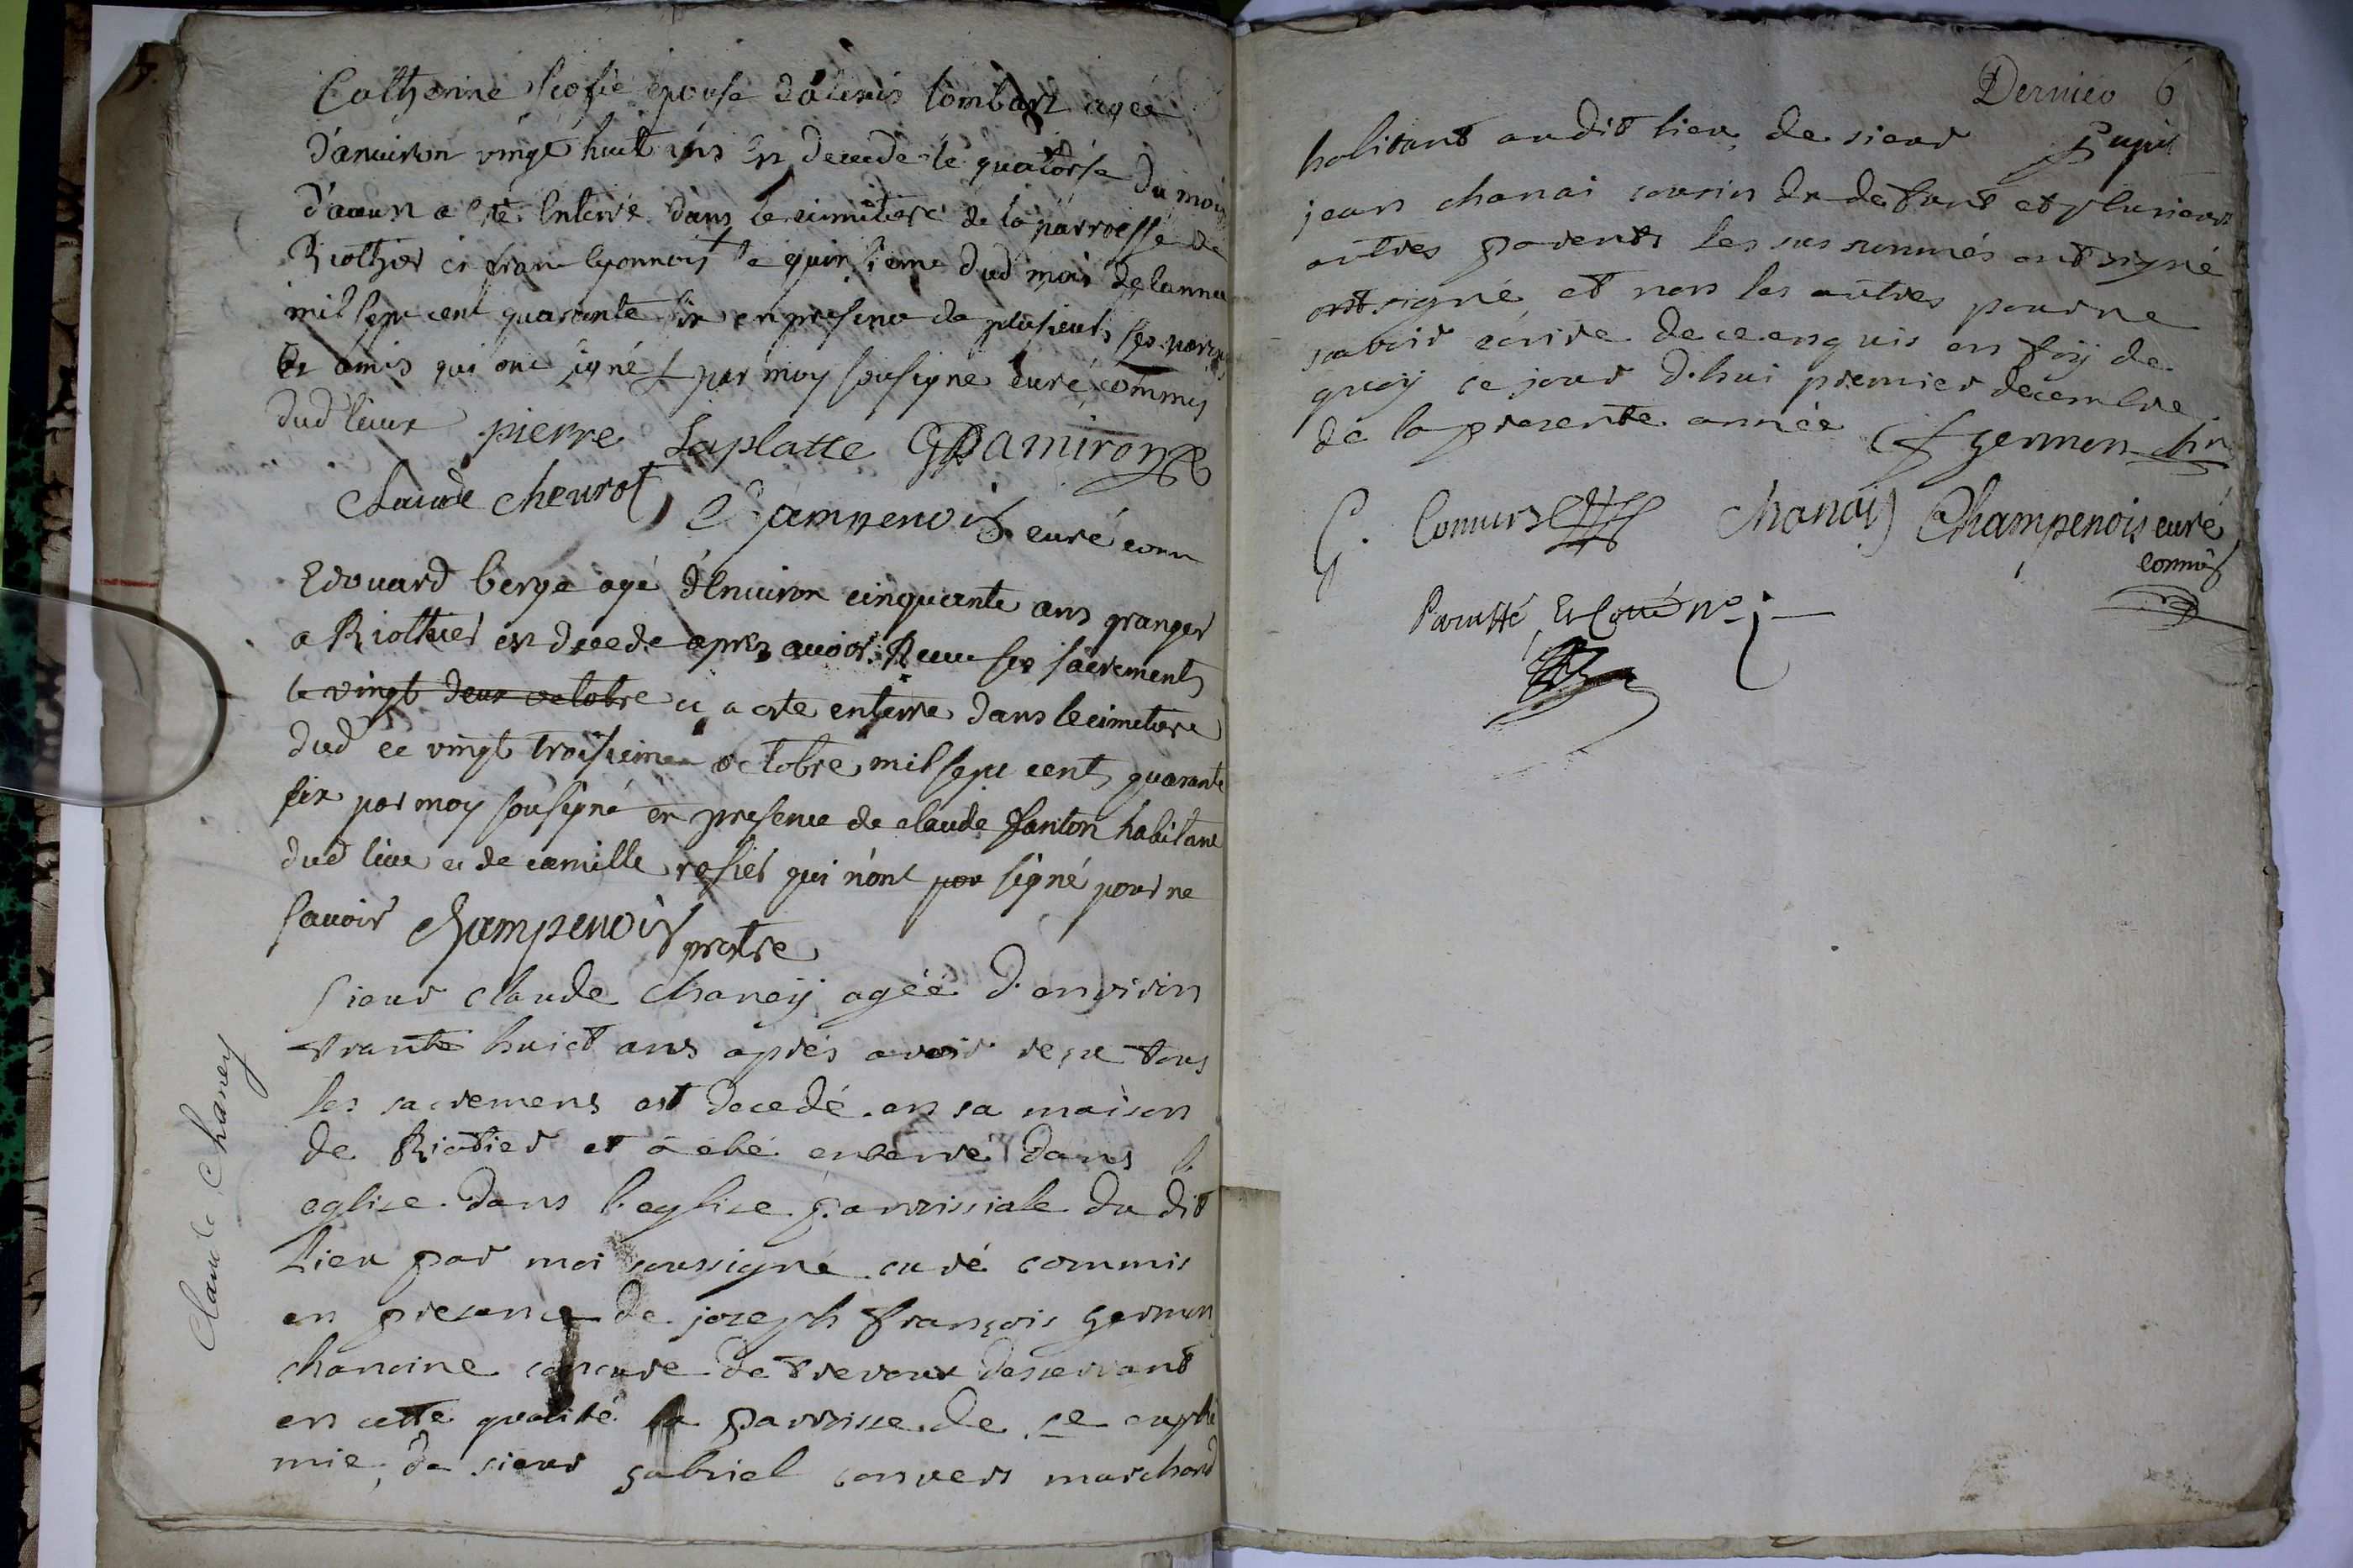 Catherine épouse d'alexis lombart agée
d'anuiron vingt huit ans est decede le quatorse du mois
d'aoust a esté Enterré dans le cimitiere de la parroesse de
Riothier en franc lyonnois le quinsieme dud mois de lannee
mil sept cent quarante six en presence de plusieurs ses parens
et amis qui ont signé par moy sousigné curé commis
dud lieux pierre Laplatte GDamiron
Claude cheurot Champenois curé com
Edouard berge agé d'Enuiron cinquante ans granger
a Riothier est decede apres auoir Receu ses sacrements
le vingt deux octobre et a este enterre dans le cimetiere
dud ce vingt troisieme octobre mil sept cent quarante
six par moy sousigné en presence de claude fanton habitant
dud lieu et de camille rosier qui n'ont pas signé pour ne
sauoir Champenois prestre
Sieur claude chaney agéé d'environ
trante huict ans aprés avoir reçu tous
les sacremens est decedé en sa maison
de Riotier et a eté enterré dans l
eglise dans l'eglise parrissiale du dit
Lieu par moi soussigné curé commis
en presence de joseph françois germon
chanoine concuré de trevoux desservant
en cette qualité la parroisse de se euphe
mie, de sieur gabriel convers marchand
Claude Chaney
Dernier 6
habitant audit lieu, de sieur
jean chanai cousin du defunt et plusieurs
autres parents les sus nommés ont signé
ont signé et non les autres pour ne
savoir ecrire de ce enquis en foy de
quoy ce jour d'hui premier decembre
de la presente année f germon chn
G. Conuers chanay Champenois curé
commis
Paratté Et Cotté